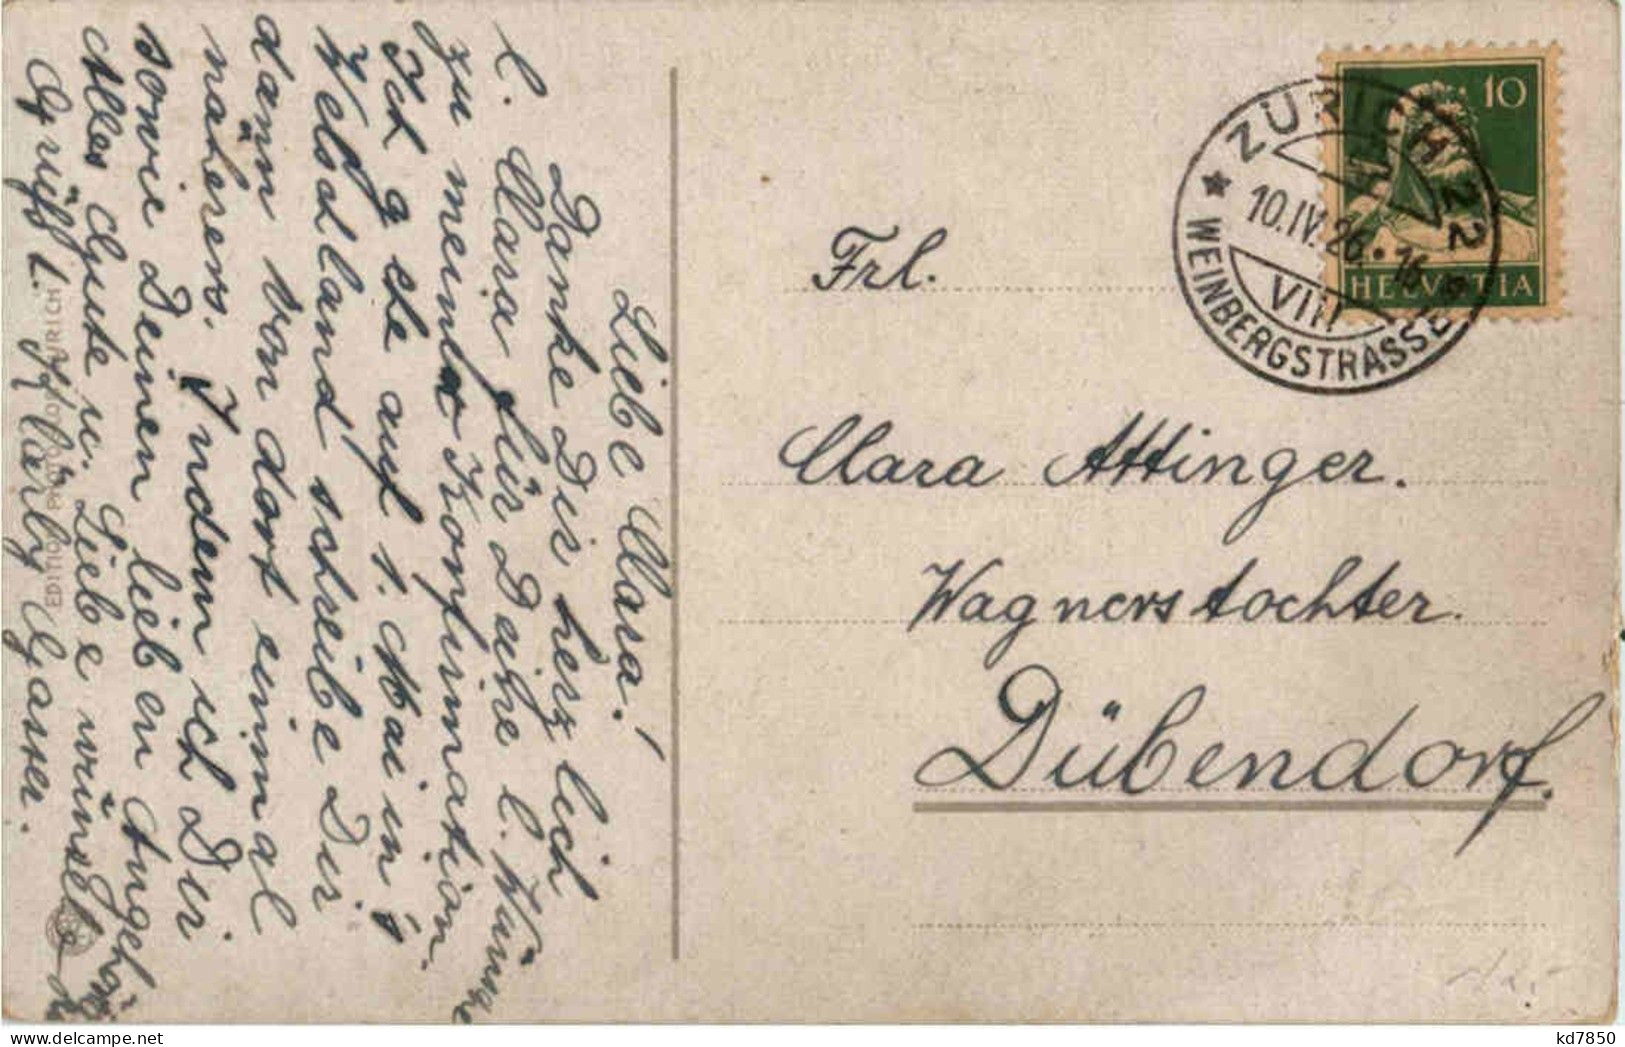 Liebe Clara!
Danke Dir herzlich
l. Clara für Deine l. Wünsche
zu meiner Konfirmation.
Ich gehe auf 1. Mai in's
Welschland schreibe Dir
dann von dort einmal
näheres. Indem ich Dir
sowie Deinen lieben Angehörigen
Alles Gute u. Liebe wünsche
Grüsst Klärly Gasser.
EDITION PHOTO ZÜRICH
ZÜRICH 22
10.IV.26.16
VIII
WEINBERGSTRASSE
10
HELVETIA
Frl.
Clara Attinger.
Wagnerstochter.
Dübendorf.
kd7850